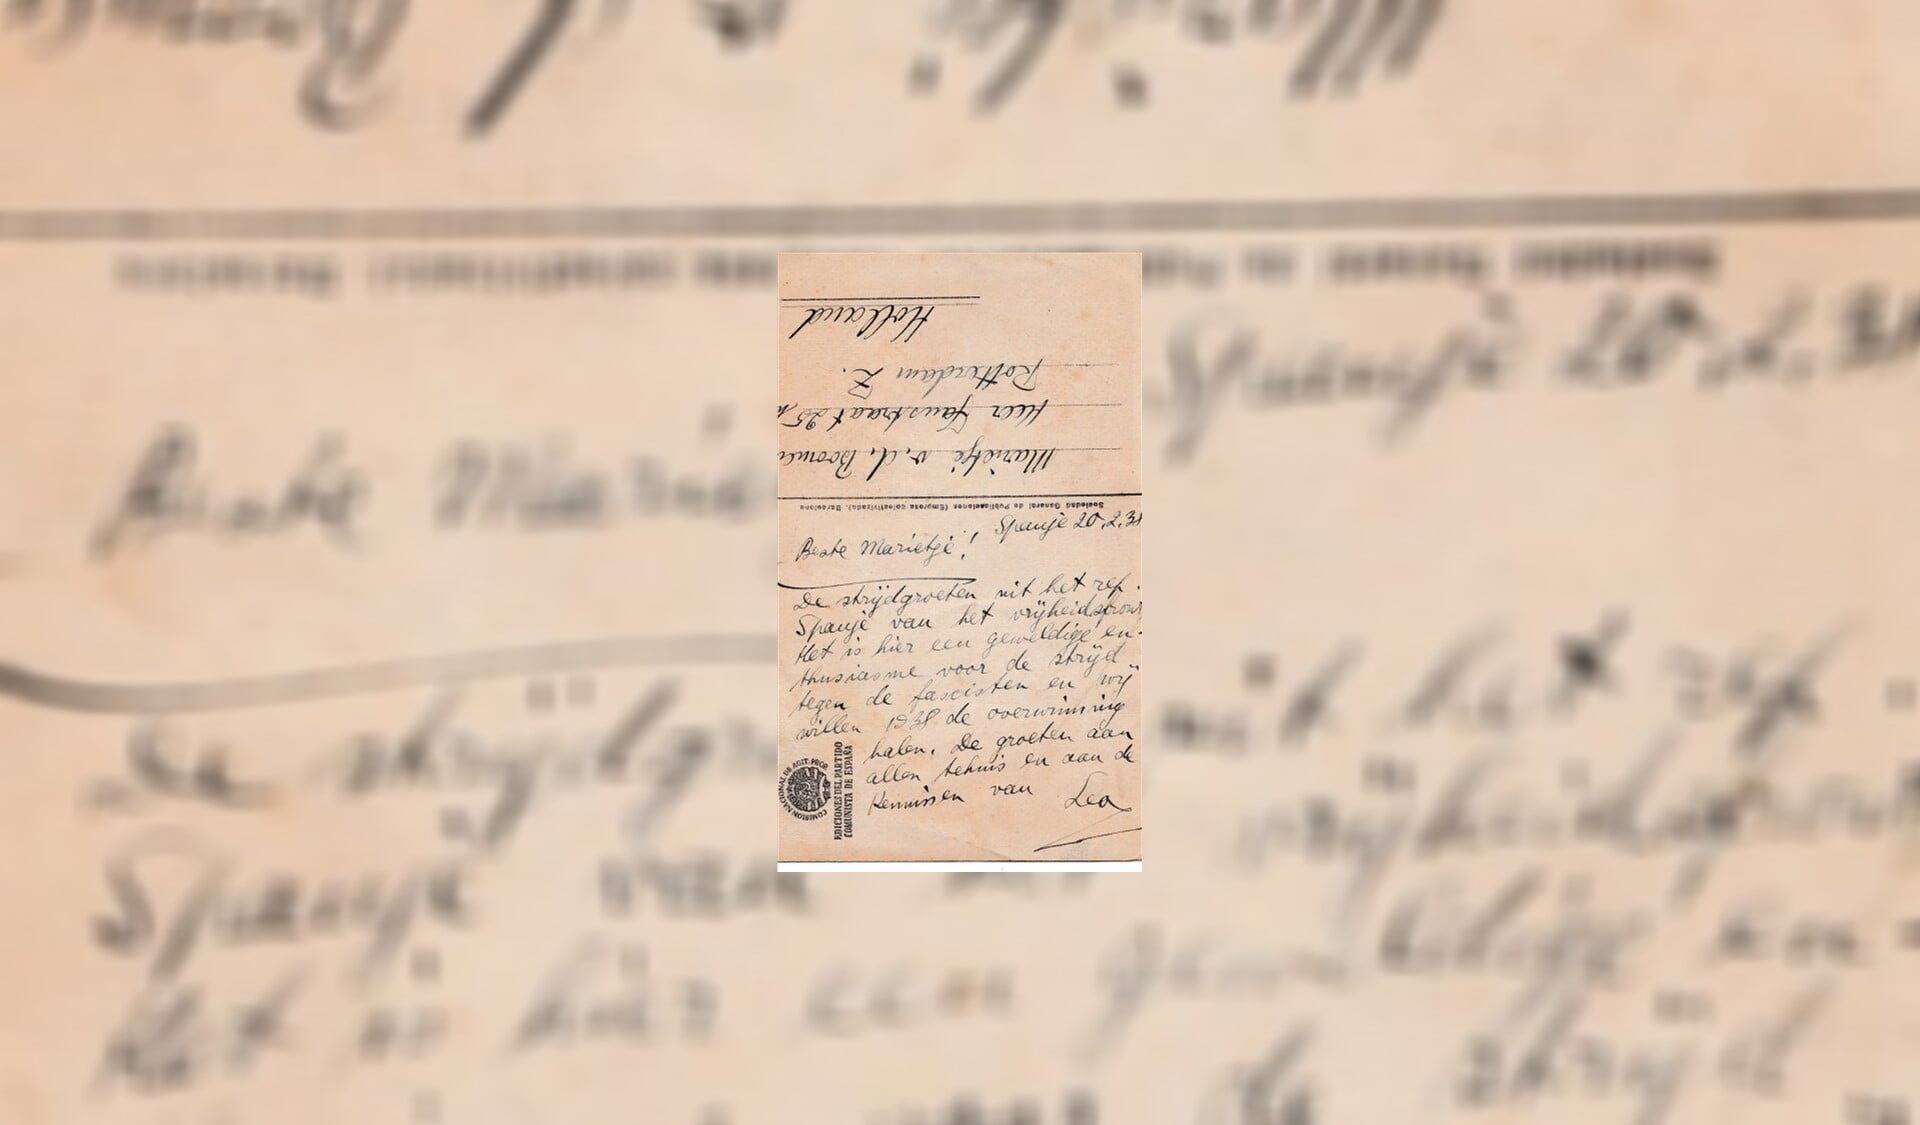 Marietje v.d. Boom
Heer Janstraat 25
Rotterdam Z.
Holland
Sociedad General de Publicaciones (Empresa colectivizada). Barcelona
Spanje 20.2.38
Beste Marietje!
De strijdgroeten uit het rep.
Spanje van het vrijheidsfront
Het is hier een geweldige en-
thusiasme voor de strijd
tegen de fascisten en wij
willen 1938 de overwinning
halen. De groeten aan
allen tehuis en aan de
Kennissen van Leo
COMISION NACIONAL DE AGIT. PROP.
EDICIONES DEL PARTIDO
COMUNISTA DE ESPAÑA